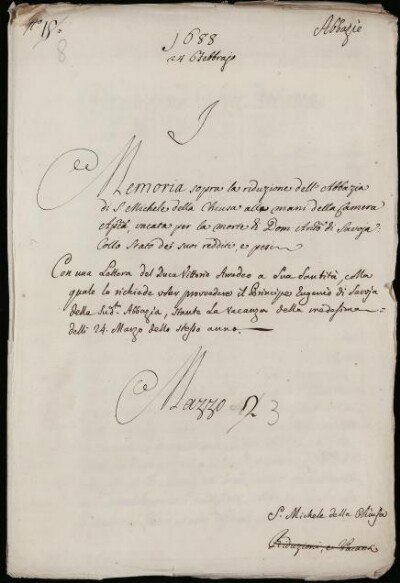 N.° 15.°
8
Abbazie
1688
24 Febbrajo
Memoria sopra la riduzione dell'Abbazia
di S. Michele della Chiusa alla mani della Camera
Aplā, vacata per la morte di Dom Antō di Savoja.
Collo Stato dei suoi redditi, e pesi
Con una Lettera del Duca Vittorio Amedeo a Sua Santità, alla
quale la richiede voler provvedere il Principe Eugenio di Savoja
della Sudª Abbazia, stante la vacanza della medesima
delli 24. Marzo dello stesso anno.
Mazzo 2 3
S. Michele della Chiusa
Riduzioni, e Vacanti